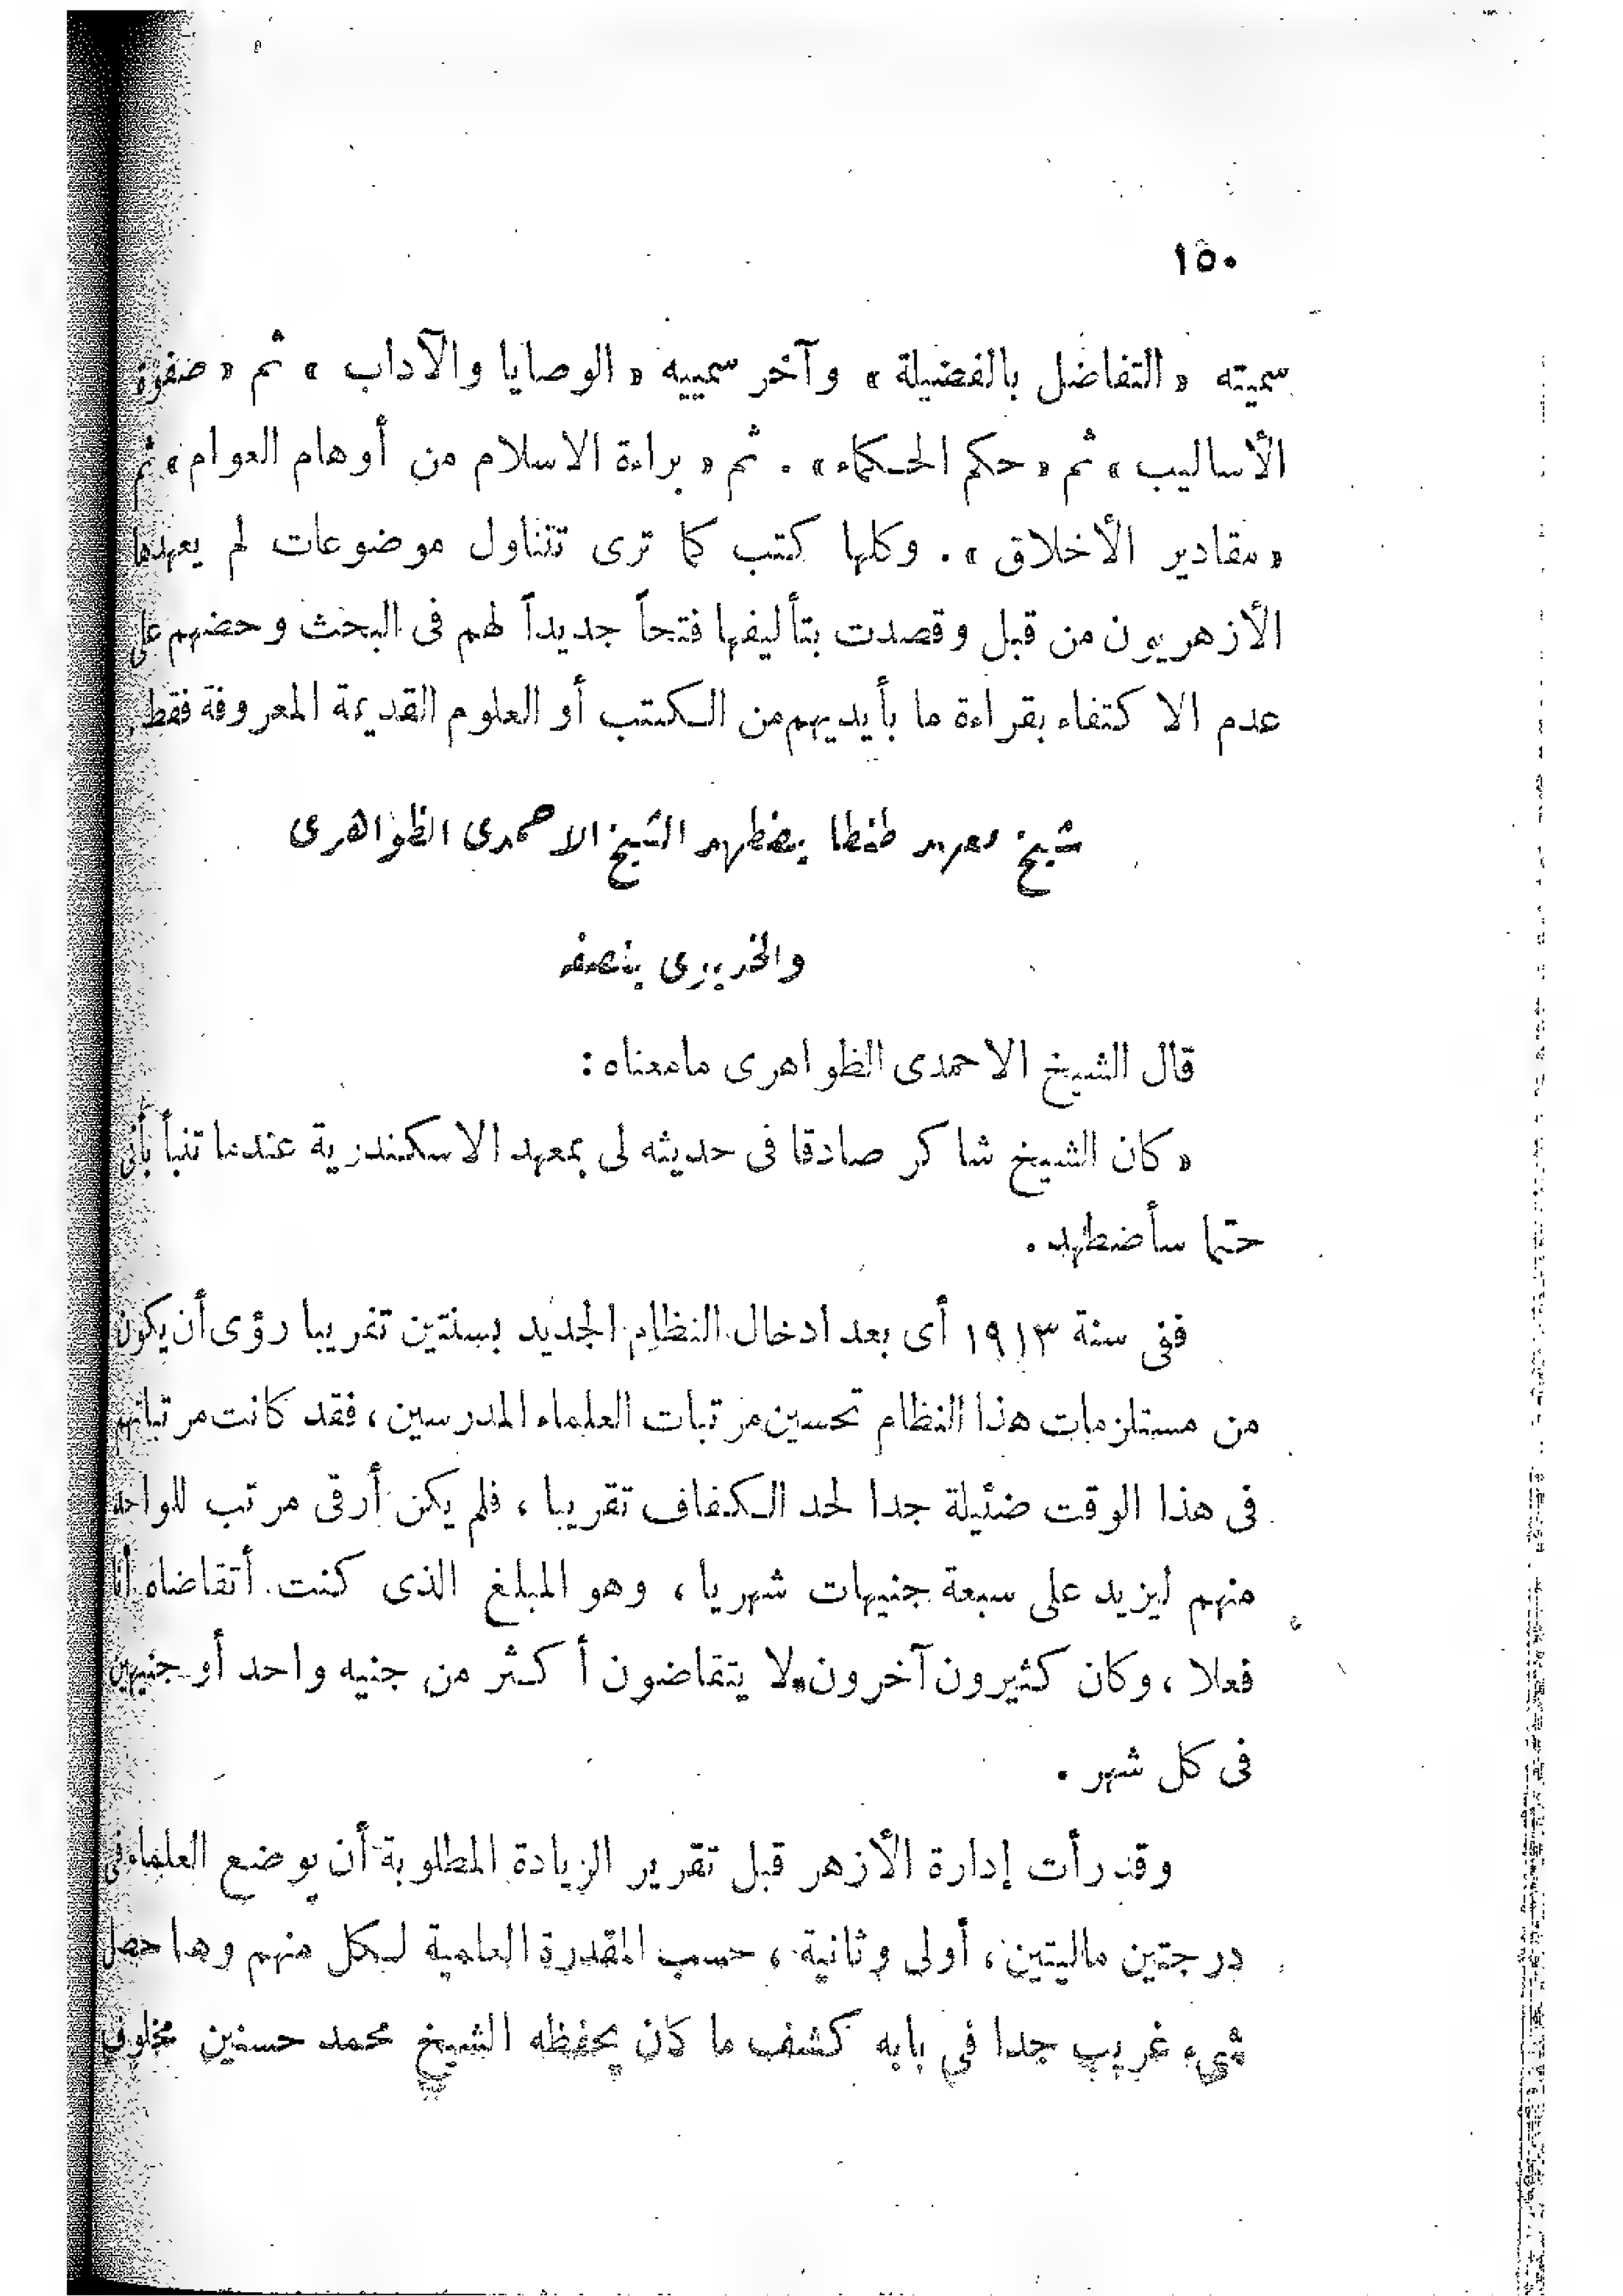 ١٥٠
سميته « التفاضل بالفضيلة » وآخر سمييه « الوصايا والآداب » ثم « صفوة
الأساليب » ثم « حكم الحكماء » . ثم « براءة الاسلام من أوهام العوام » ثم
« مقادير الأخلاق » . وكلها كتب كما ترى تتناول موضوعات لم يعهدها
الأزهريون من قبل وقصدت بتأليفها فتحاً جديداً لهم فى البحث وحضهم على
عدم الاكتفاء بقراءة ما بأيديهم من الكتب أو العلوم القديمة المعروفة فقط
شيخ معهد طنطا يضطهد الشيخ الاحمدى الظواهرى
والخديوى ينصفه
قال الشيخ الاحمدى الظواهرى مامعناه :
« كان الشيخ شاكر صادقا فى حديثه لى بمعهد الاسكندرية عندما تنبأ بأنى
حتما سأضطهد .
ففى سنة ١٩١٣ أى بعد ادخال النظام الجديد بسنتين تقريبا رؤى أن يكون
من مستلزمات هذا النظام تحسين مرتبات العلماء المدرسين ، فقد كانت مرتباتهم
فى هذا الوقت ضئيلة جدا لحد الكفاف تقريبا ، فلم يكن أرقى مرتب للواحد
منهم ليزيد على سبعة جنيهات شهريا ، وهو المبلغ الذى كنت أتقاضاه أنا
فعلا ، وكان كثيرون آخرون لا يتقاضون أكثر من جنيه واحد أو جنيهين
فى كل شهر .
وقد رأت إدارة الأزهر قبل تقرير الزيادة المطلوبة أن يوضع العلماء فى
درجتين ماليتين ، أولى وثانية ، حسب المقدرة العلمية لكل منهم وهنا حصل
شىء غريب جدا فى بابه كشف ما كان يحفظه الشيخ محمد حسنين مخلوف